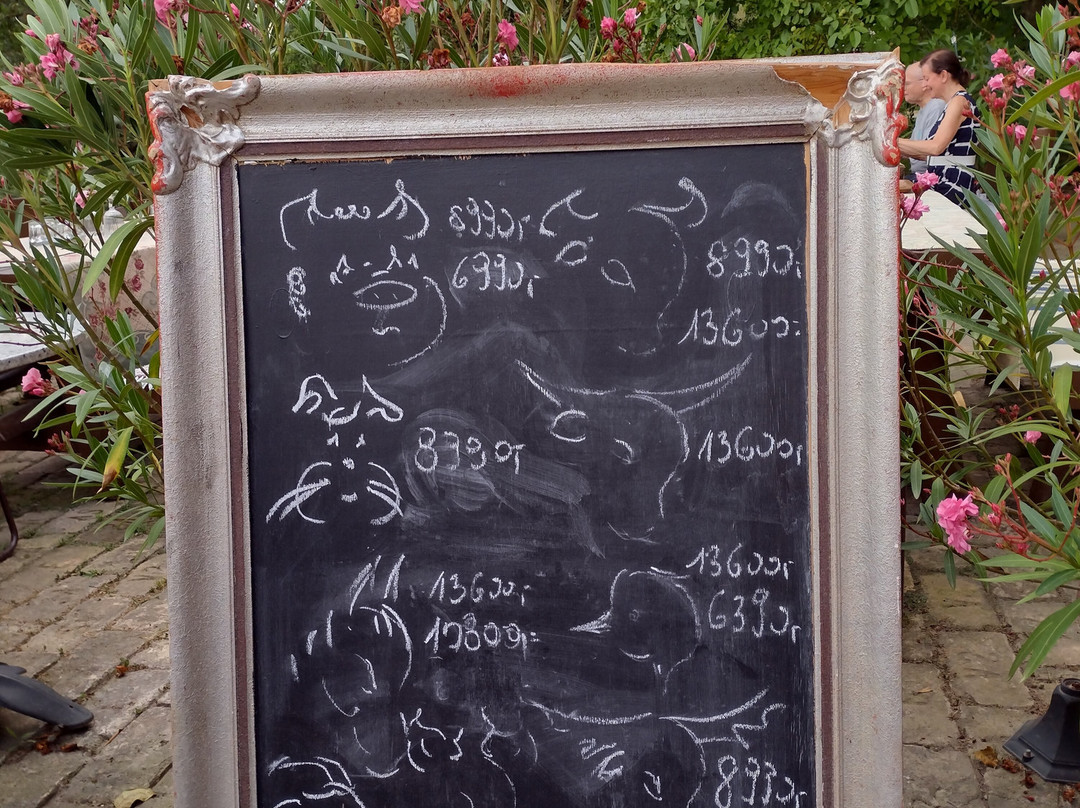 8990,-
6990,-
8990,-
13600,-
8790,-
13600,-
13600,-
13600,-
6390,-
8990,-